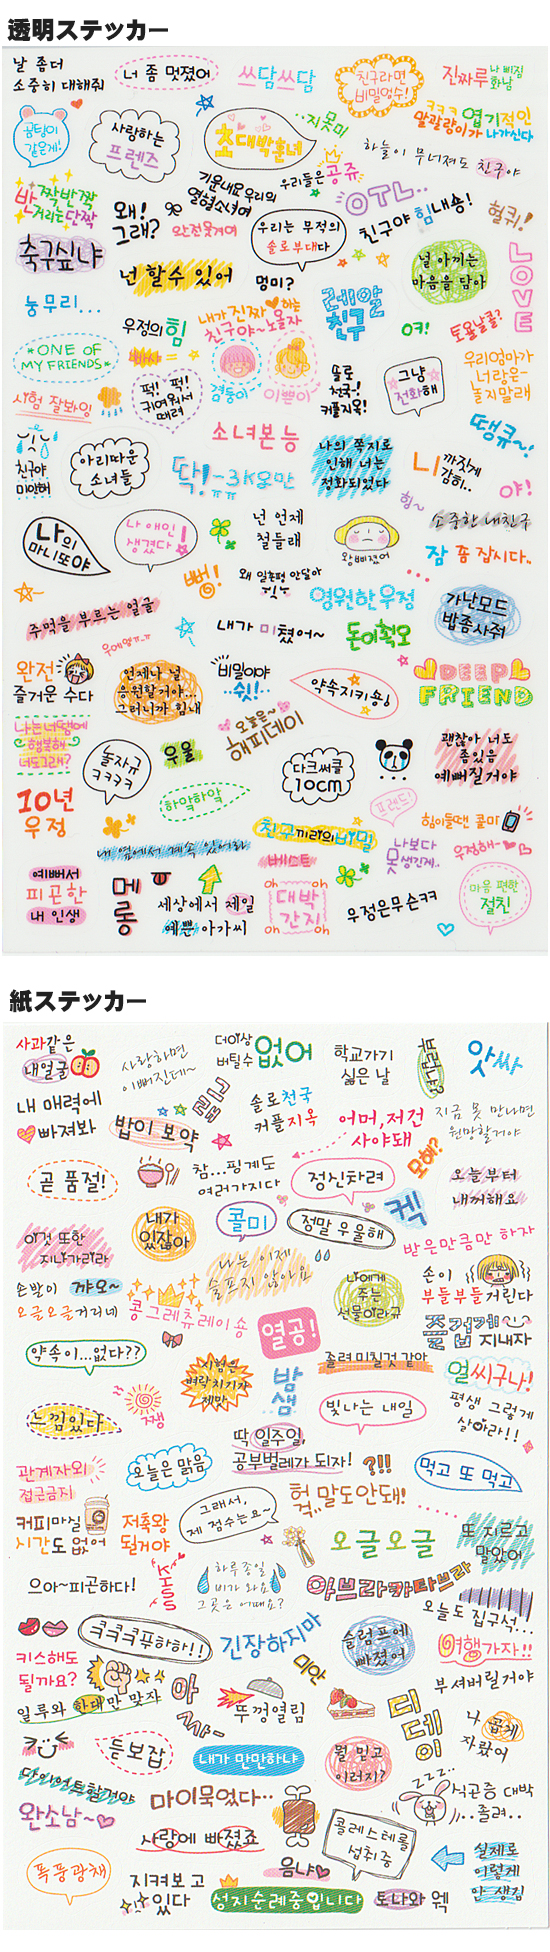 透明ステッカー
날 좀더
소중히 대해줘
너 좀 멋졌어
쓰담쓰담
친구라면
비밀엄수!
진짜루
나 삐짐
화남
곰팅이
같은게!
사랑하는
프렌즈
초대박훈녀
..지못미
ㅋㅋㅋ 엽기적인
말괄량이가 나가신다
하늘이 무너져도 친구야
반짝반짝
거리는단짝
왜!
그래?
기운내요우리의
열혈소녀여
완전웃겨여
우리들은공쥬
OTL..
친구야 힘내숑!
헐퀴!
축구싶냐
넌 할수 있어
우리는 무적의
솔로부대다
멍미?
널 아끼는
마음을 담아
LOVE
눙무리...
우정의힘
내가 진짜 하는
친구야~노올자
레알
친구
여!
토욜날콜?
*ONE OF
MY FRIENDS*
퍽! 퍽!
귀여워서
때려
껌둥이
이쁜이
솔로
천국!
커플지옥!
그냥
전화해
우리엄마가
너랑은
놀지말래
시험 잘봐잉
친구야
미안해
아리따운
소녀들
소녀본능
딱!-3kg만
ㅠㅠ
나의 쪽지로
인해 너는
정화되었다
니까짓게
감히..
땡큐~!
야!
힝~
소중한 내친구
나의
마니또야
나 애인
생겼다!
넌 언제
철들래
왕삐졌어
잠 좀 잡시다..
뻐!
왜 일촌평 안달아
영원한우정
가난모드
밥좀사줘
주먹을 부르는 얼굴
내가 미쳤어~
돈이쵝오
완전
즐거운 수다
언제나 널
응원할거야...
그러니까 힘내
비밀이야
쉿!..
약속지키숑!
DEEP
FRIEND
나는너땜에
행복해
너도그래?
놀자규
ㅋㅋㅋㅋ
우울
오늘은~
해피데이
다크써클
10cm
괜찮아 너도
좀있음
예뻐질거야
10년
우정
하악하악
프렌드!
힘이들땐 콜미
내 옆에서 계속 있어라
친구끼리의비밀
베스트
나보다
못생긴게..
우정해~
예뻐서
피곤한
내 인생
메
롱
세상에서 제일
예쁜 아가씨
oh oh
대박
간지
oh oh
우정은무슨ㅋㅋ
마음 편한
절친
紙ステッカー
사과같은
내얼굴
사랑하면
이뻐진데~
더이상
버틸수없어
학교가기
싫은 날
부럽냐?
앗싸
내 매력에
빠져봐
밥이 보약
솔로천국
커플지옥
어머,저건
사야돼
지금 못 만나면
원망할거야
곧 품절!
참...핑계도
여러가지다
정신차려
모해?
오늘부터
내꺼해요
이것 또한
지나가리라
내가
있잖아
콜미
정말 우울해
켁
받은만큼만 하자
손발이 꺄오~
오글오글거리네
나는 이제
슬프지 않아요
나에게
주는
선물이라규
손이
부들부들거린다
콩그레츄레이숑
열공!
즐겁게 지내자
약속이...없다??
시험은
벼락치기가
제맛!
밤
샘..
졸려미칠것 같아
얼씨구나!
느낌있다
쨍
빛나는 내일
평생 그렇게
살아라!!
딱 일주일,
공부벌레가 되자!
?!!!
관계자외
접근금지
오늘은 맑음
먹고 또 먹고
커피마실
시간도 없어
저축왕
될거야
그래서,
제 점수는요~
헉..말도안돼!
오글오글
또 지르고
말았어
으아~피곤하다!
KISS
하루종일
비가 와요
그곳은 어때요?
아브라카다브라
오늘도 집구석...
ㅋㅋㅋㅋ푸하하!!
긴장하지마
슬럼프에
빠졌어
여행가자!!
키스해도
될까요?
부셔버릴거야
일루와 한대만 맞자
아
싸~
뚜껑열림
미안
디
데
이
나 곱게
자랐어
듣보잡
내가 만만하냐
뭘 믿고
이러지?
다이어트할거야
마이묵었다..
zzz..
식곤증 대박
..졸려..
완소남~
사랑에 빠졌죠
콜레스테롤
섭취중
실제로
이렇게
안 생김
폭풍광채
음냐
지켜보고
있다
성지순례중입니다
토나와 웩